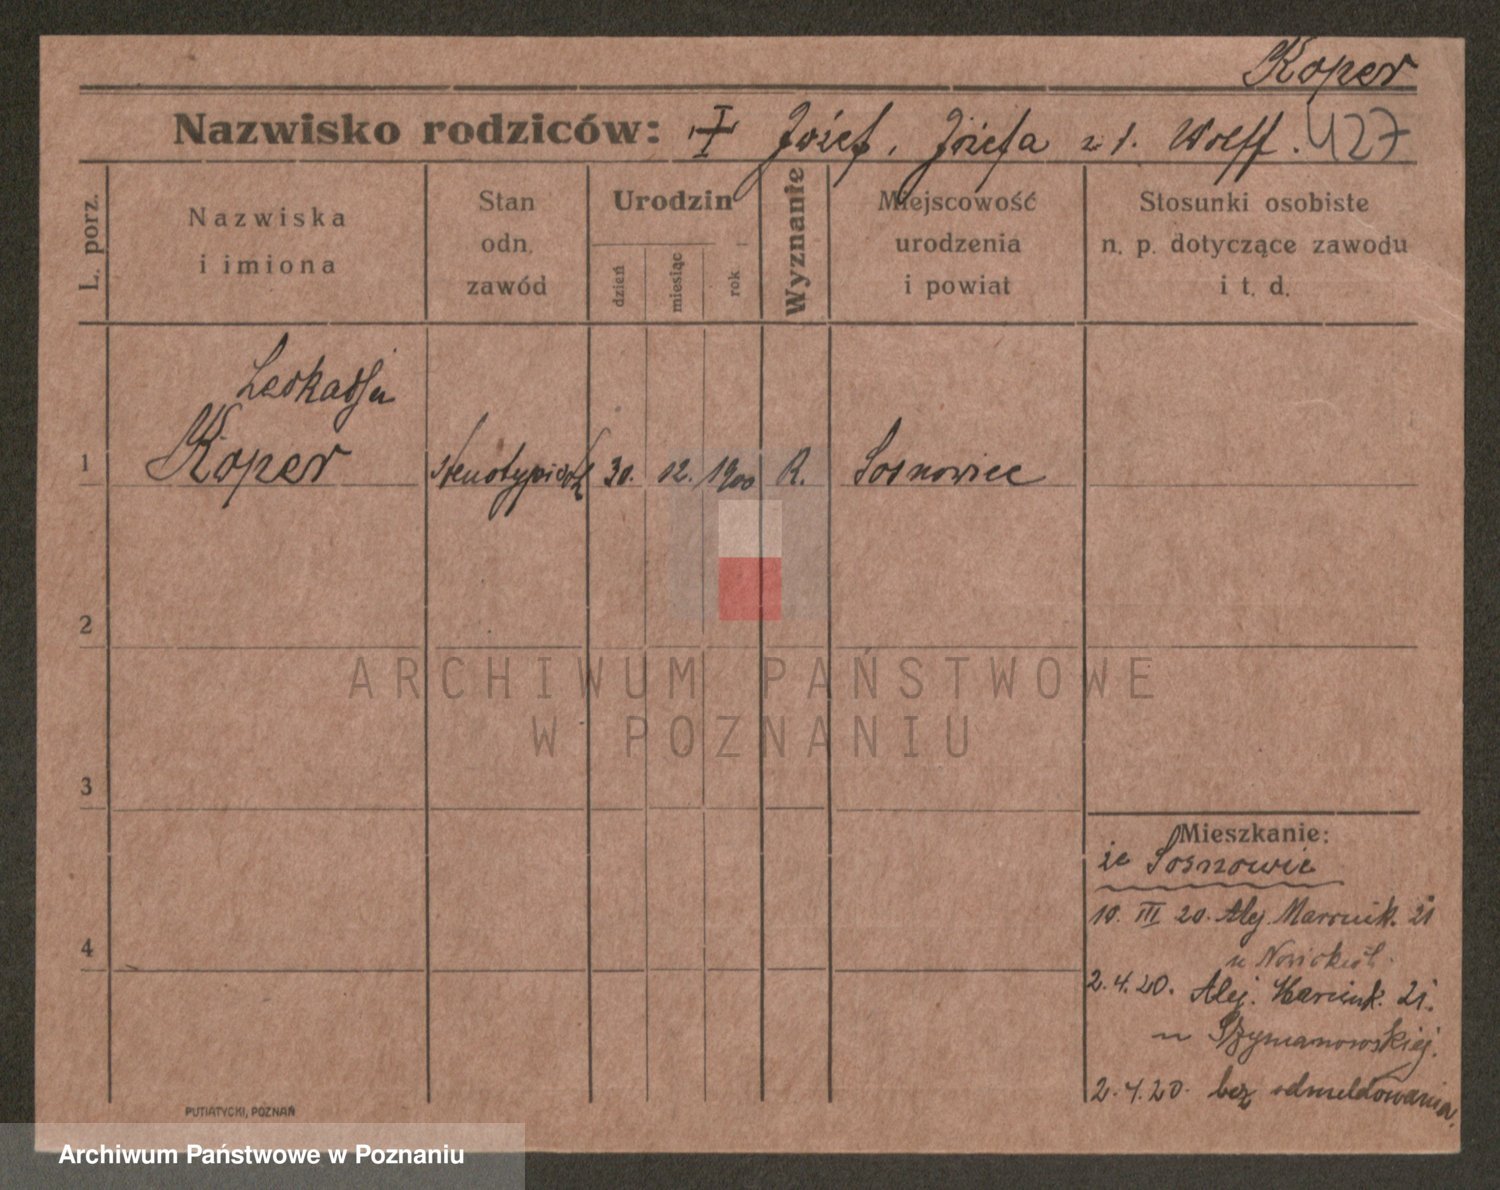 Koper
Nazwisko rodziców: I Józef, Józefa z d. Wolff. 427
L. porz.
Nazwiska
i imiona
Stan
odn.
zawód
Urodzin
dzień
miesiąc
rok
Wyznanie
Miejscowość
urodzenia
i powiat
Stosunki osobiste
n. p. dotyczące zawodu
i t. d.
Leokadja
1 Koper stenotypistk 30. 12. 1900 R. Sosnowiec
2
ARCHIWUM PAŃSTWOWE
W POZNANIU
3
4
Mieszkanie:
ze Sosnowic
10. III 20. Alej. Marcink. 21
u
2.4.20. Alej. Marcink. 21.
u Szymanowskiej.
2.4.20. bez odmeldowania.
PUTIATYCKI, POZNAŃ
Archiwum Państwowe w Poznaniu